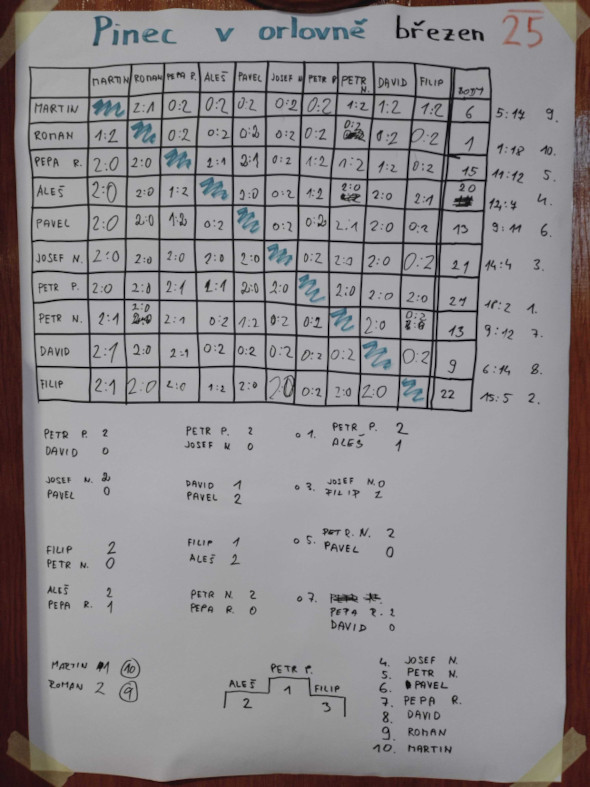 Pinec v orlovně březen 25
MARTIN ROMAN PEPA R. ALEŠ PAVEL JOSEF N PETR P PETR N. DAVID FILIP BODY
MARTIN 2:1 0:2 0:2 0:2 0:2 0:2 1:2 1:2 1:2 6 5:17 9.
ROMAN 1:2 0:2 0:2 0:2 0:2 0:2 0:2 0:2 0:2 1 1:18 10.
PEPA R. 2:0 2:0 2:1 2:1 0:2 1:2 1:2 1:2 0:2 15 11:12 5.
ALEŠ 2:0 2:0 1:2 2:0 0:2 1:2 2:0 2:0 2:1 20 4.
PAVEL 2:0 2:0 1:2 0:2 0:2 0:2 2:1 2:0 0:2 13 9:11 6.
JOSEF N. 2:0 2:0 2:0 2:0 2:0 0:2 2:0 2:0 0:2 21 14:4 3.
PETR P. 2:0 2:0 2:1 2:1 2:0 2:0 2:0 2:0 2:0 18:2 1.
PETR N. 2:1 2:0 2:1 0:2 1:2 0:2 0:2 2:0 0:2 13 9:12 7.
DAVID 2:1 2:0 2:1 0:2 0:2 0:2 0:2 0:2 0:2 9 6:14 8.
FILIP 2:1 2:0 2:0 1:2 2:0 2:0 0:2 2:0 2:0 22 15:5 2.
PETR P. 2
DAVID 0
JOSEF N. 2
PAVEL 0
FILIP 2
PETR N. 0
ALEŠ 2
PEPA R. 1
PETR P. 2
JOSEF N 0
DAVID 1
PAVEL 2
FILIP 1
ALEŠ 2
PETR N. 2
PEPA R. 0
o 1. PETR P. 2
ALEŠ 1
o 3. JOSEF N. 0
FILIP 2
o 5. PETR. N. 2
PAVEL 0
o 7.
PEPA R. 2
DAVID 0
MARTIN 1 10
ROMAN 2 9
PETR P.
ALEŠ 1 FILIP
2 3
4. JOSEF N.
5. PETR N.
6. PAVEL
7. PEPA R.
8. DAVID
9. ROMAN
10. MARTIN